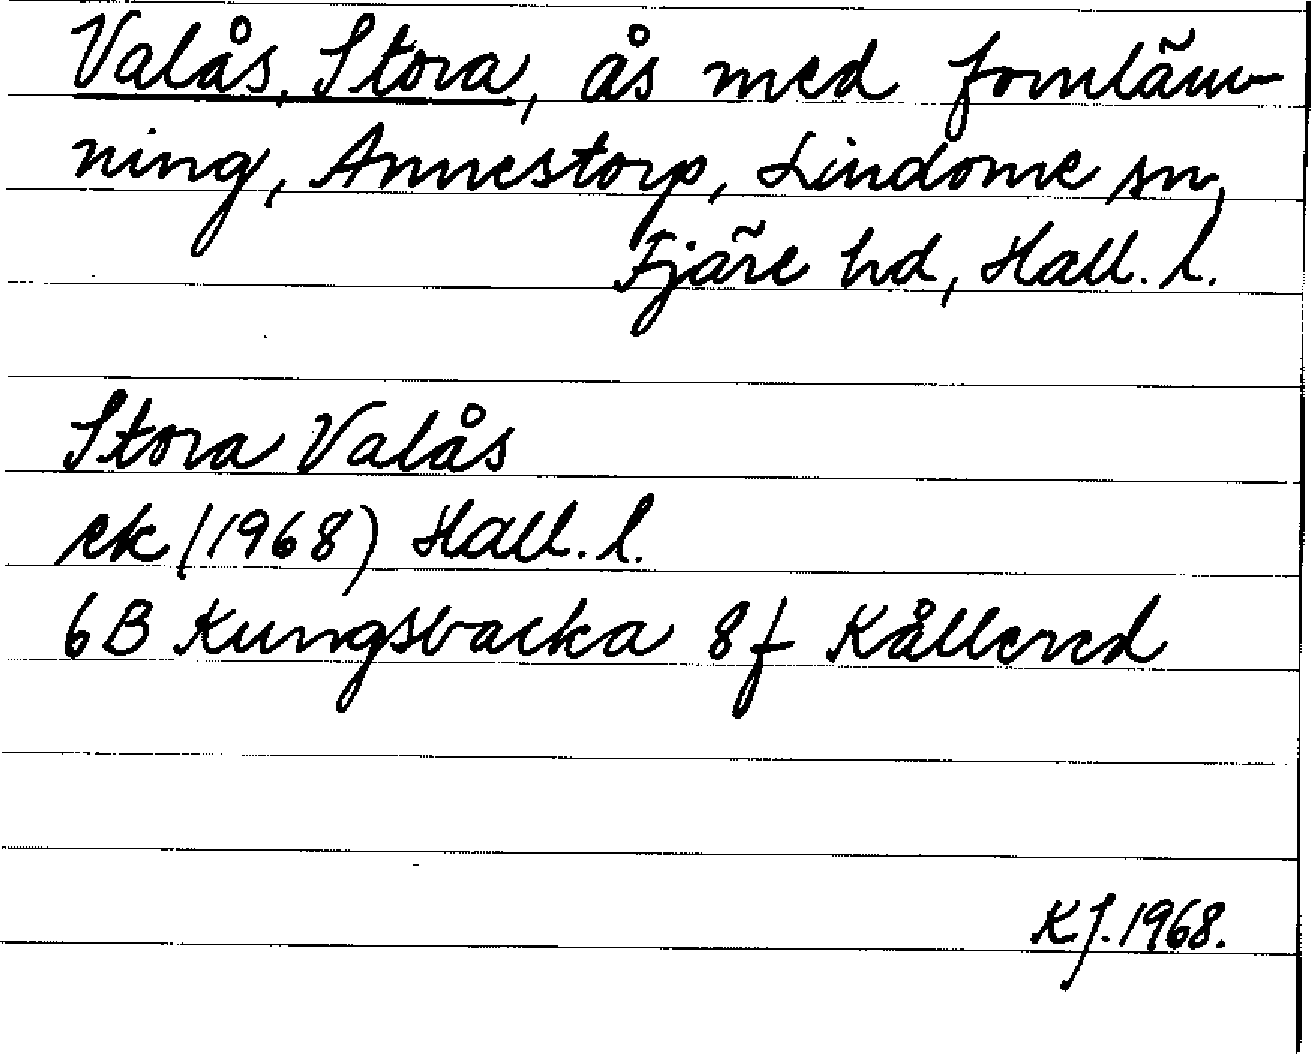 Valås, Stora, ås med fornläm-
ning, Annestorp, Lindome sn,
Fjäre hd, Hall. l.
Stora Valås
ek (1968) Hall. l.
6B Kungsbacka 8f Kållered
KJ. 1968.